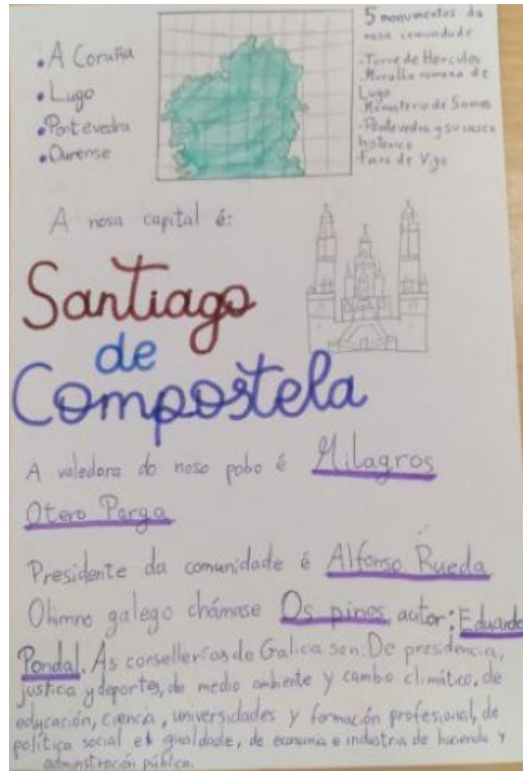 • A Coruña
• Lugo
• Pontevedra
• Ourense
5 monumentos da
nosa comunidade
- Torre de Hércules
- Muralla romana de
Lugo
- de Samos
- Pontevedra y su casco
historico
Faro de Vigo
A nosa capital é:
Santiago
de
Compostela
A valedora do noso pobo é Milagros
Otero Parga
Presidente da comunidade é Alfonso Rueda
O himno galego chámase Os pinos, autor: Eduardo
Pondal. As consellerías de Galicia son: De presidencia,
justicia y deportes, de medio ambiente y cambio climático, de
educación, ciencia, universidades y formación profesional, de
política social e igualdade, de economia e industria de hacienda y
adminstración pública.